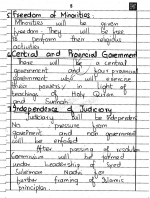 5) Freedom of Minorities:
Minorities will be given
freedom. They will be free
to perform their religious
activities.
6) Central and Provincial Government
There will be a central
government and four provincial
government who will exercise
their powers in light of
teachings of Holy Quran
and Sunnah.
7) Independence of Judiciary
Judiciary will be independent
No pressure from
government and non government
will be entailed
After passing of
Commission will be formed
under Leadership of Syed
Suleman Nadvi for
further framing of Islamic
principles.